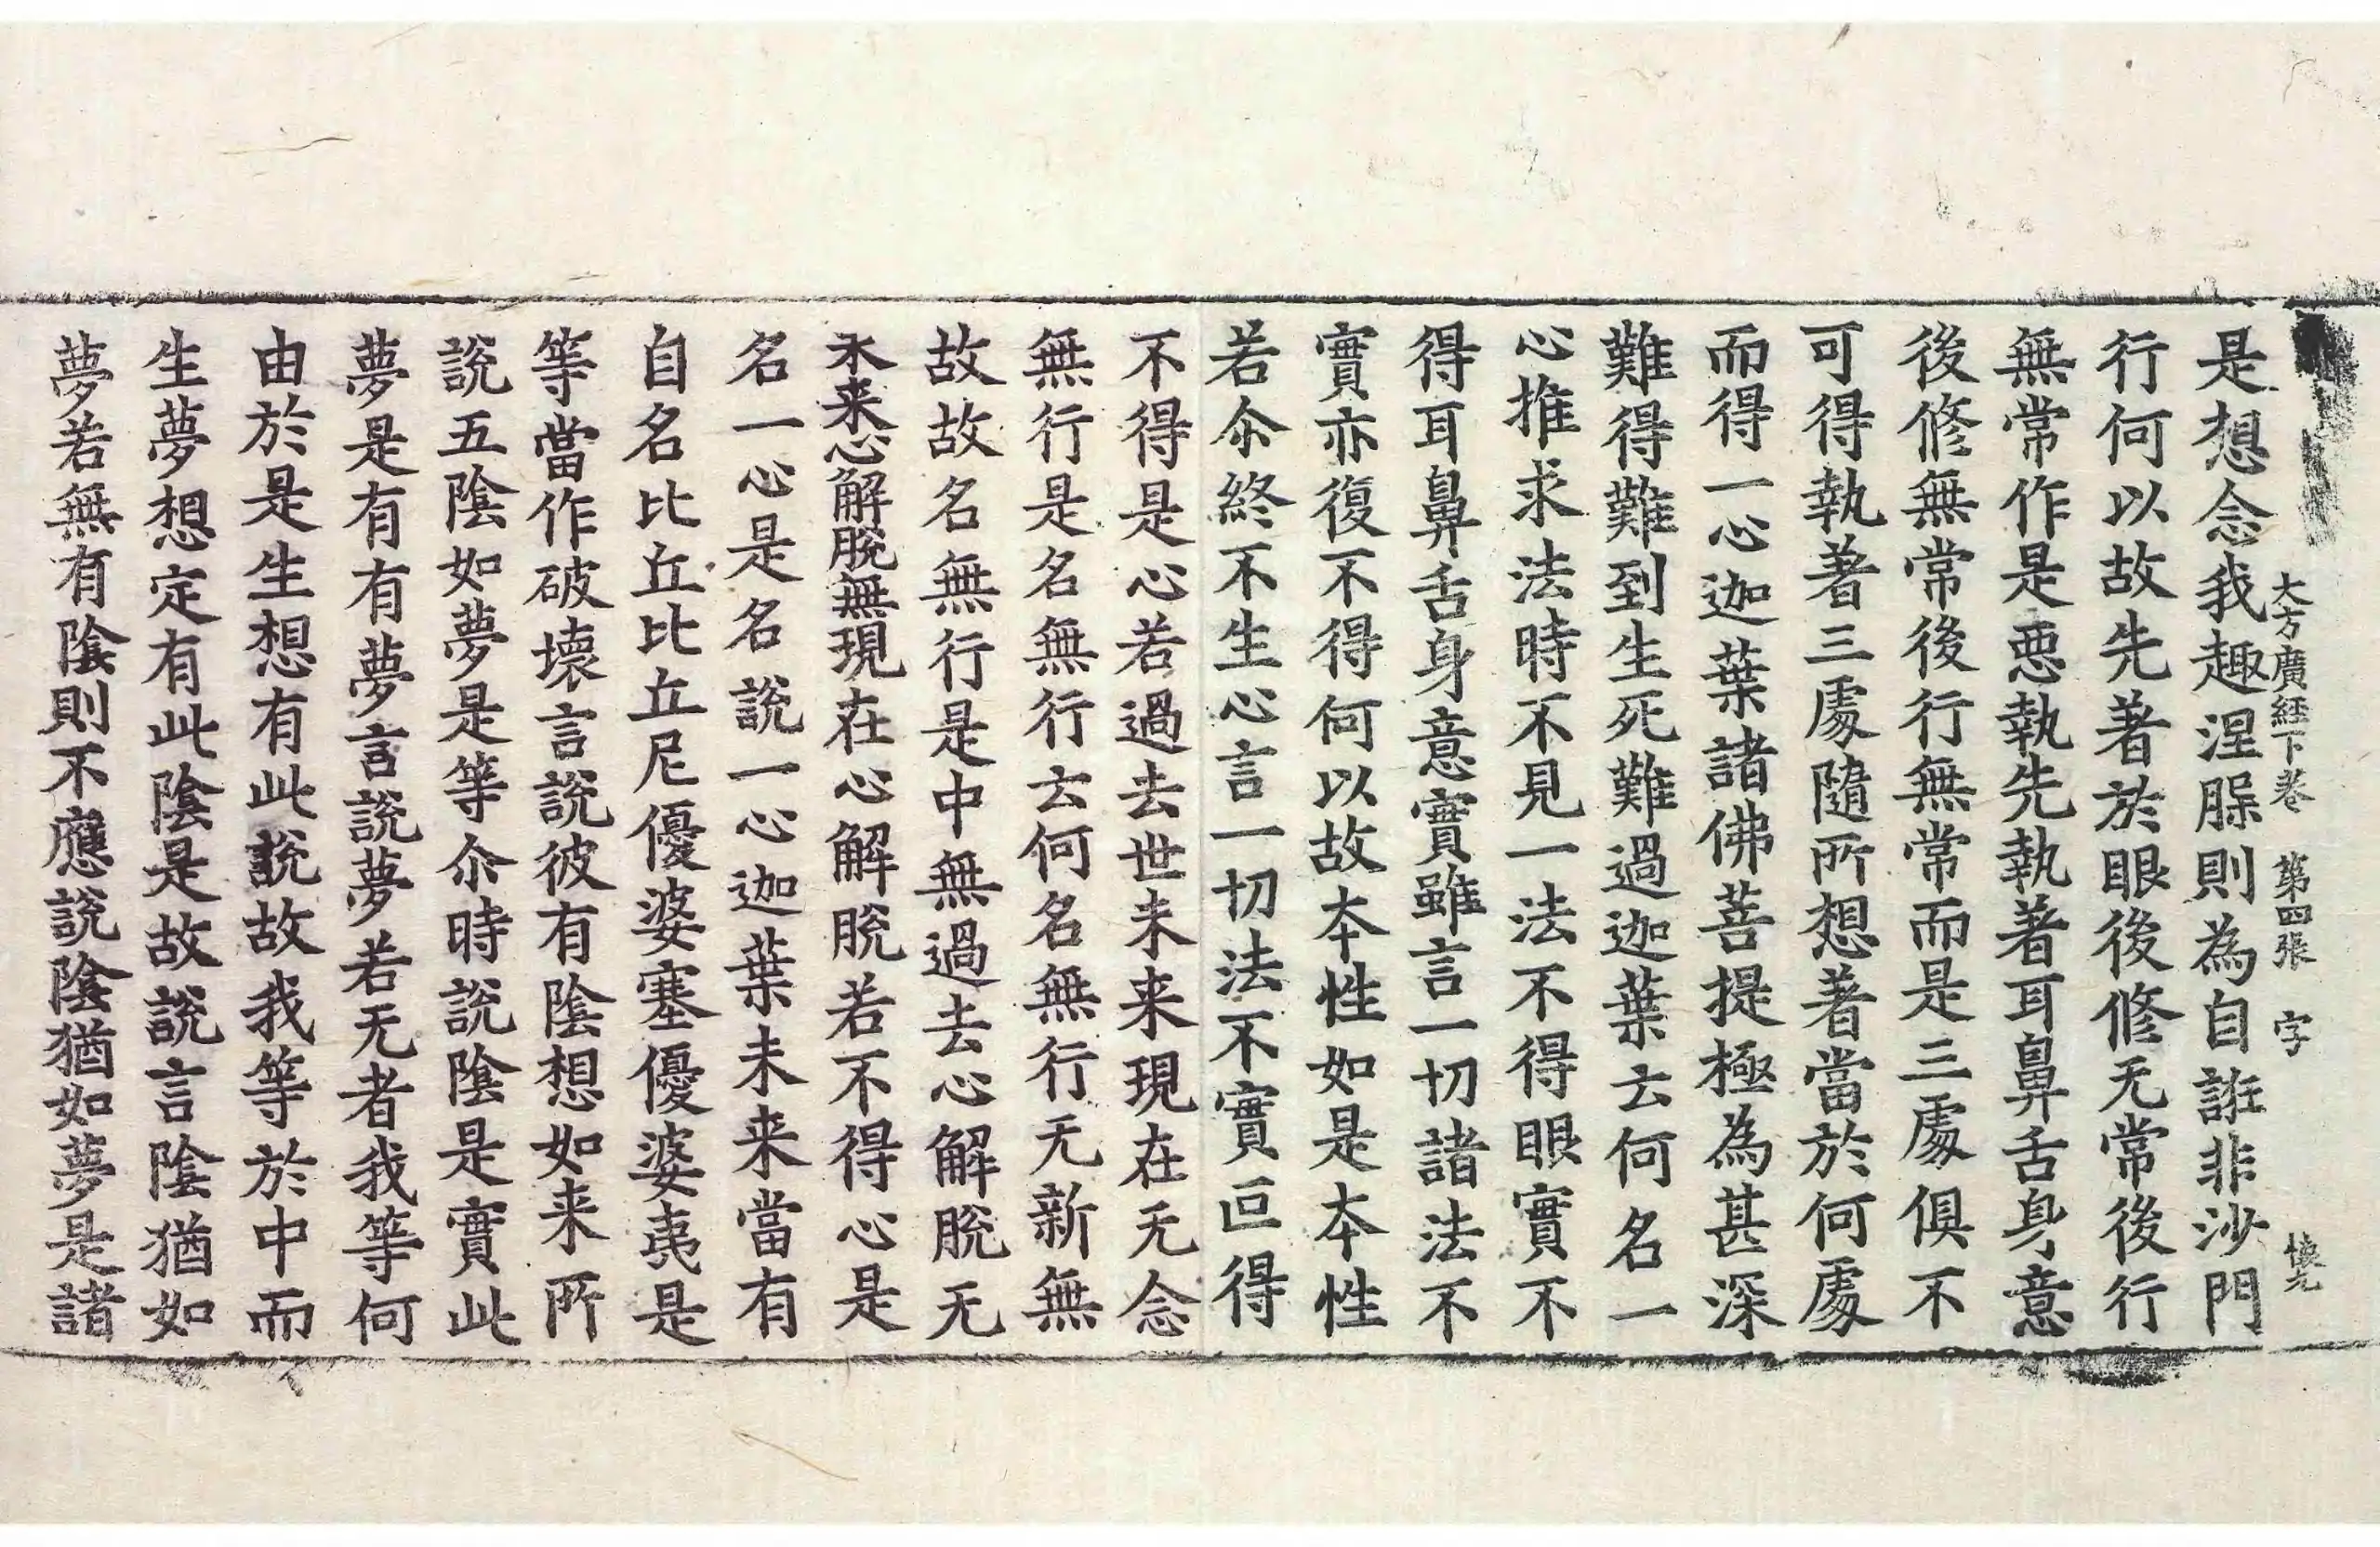 大方廣経下卷 第四張 字
是想念我趣涅脵則為自誑非沙門
行何以故先著於眼後修无常後行
無常作是惡執先執著耳鼻舌身意
後修無常後行無常而是三處俱不
可得執著三處隨所想著當於何處
而得一心迦葉諸佛菩提極為甚深
難得難到生死難過迦葉云何名一
心推求法時不見一法不得眼實不
得耳鼻舌身意實雖言一切諸法不
實亦復不得何以故本性如是本性
若尒終不生心言一切法不實叵得
不得是心若過去世未来現在无念
無行是名無行云何名無行无新無
故故名無行是中無過去心解脫无
未来心解脫無現在心解脫若不得心是
名一心是名說一心迦葉未来當有
自名比丘比丘尼優婆塞優婆夷是
等當作破壞言說彼有陰想如来所
說五陰如夢是等尒時說陰是實此
夢是有有夢言說夢若无者我等何
由於是生想有此說故我等於中而
生夢想定有此陰是故說言陰猶如
夢若無有陰則不應說陰猶如夢是諸